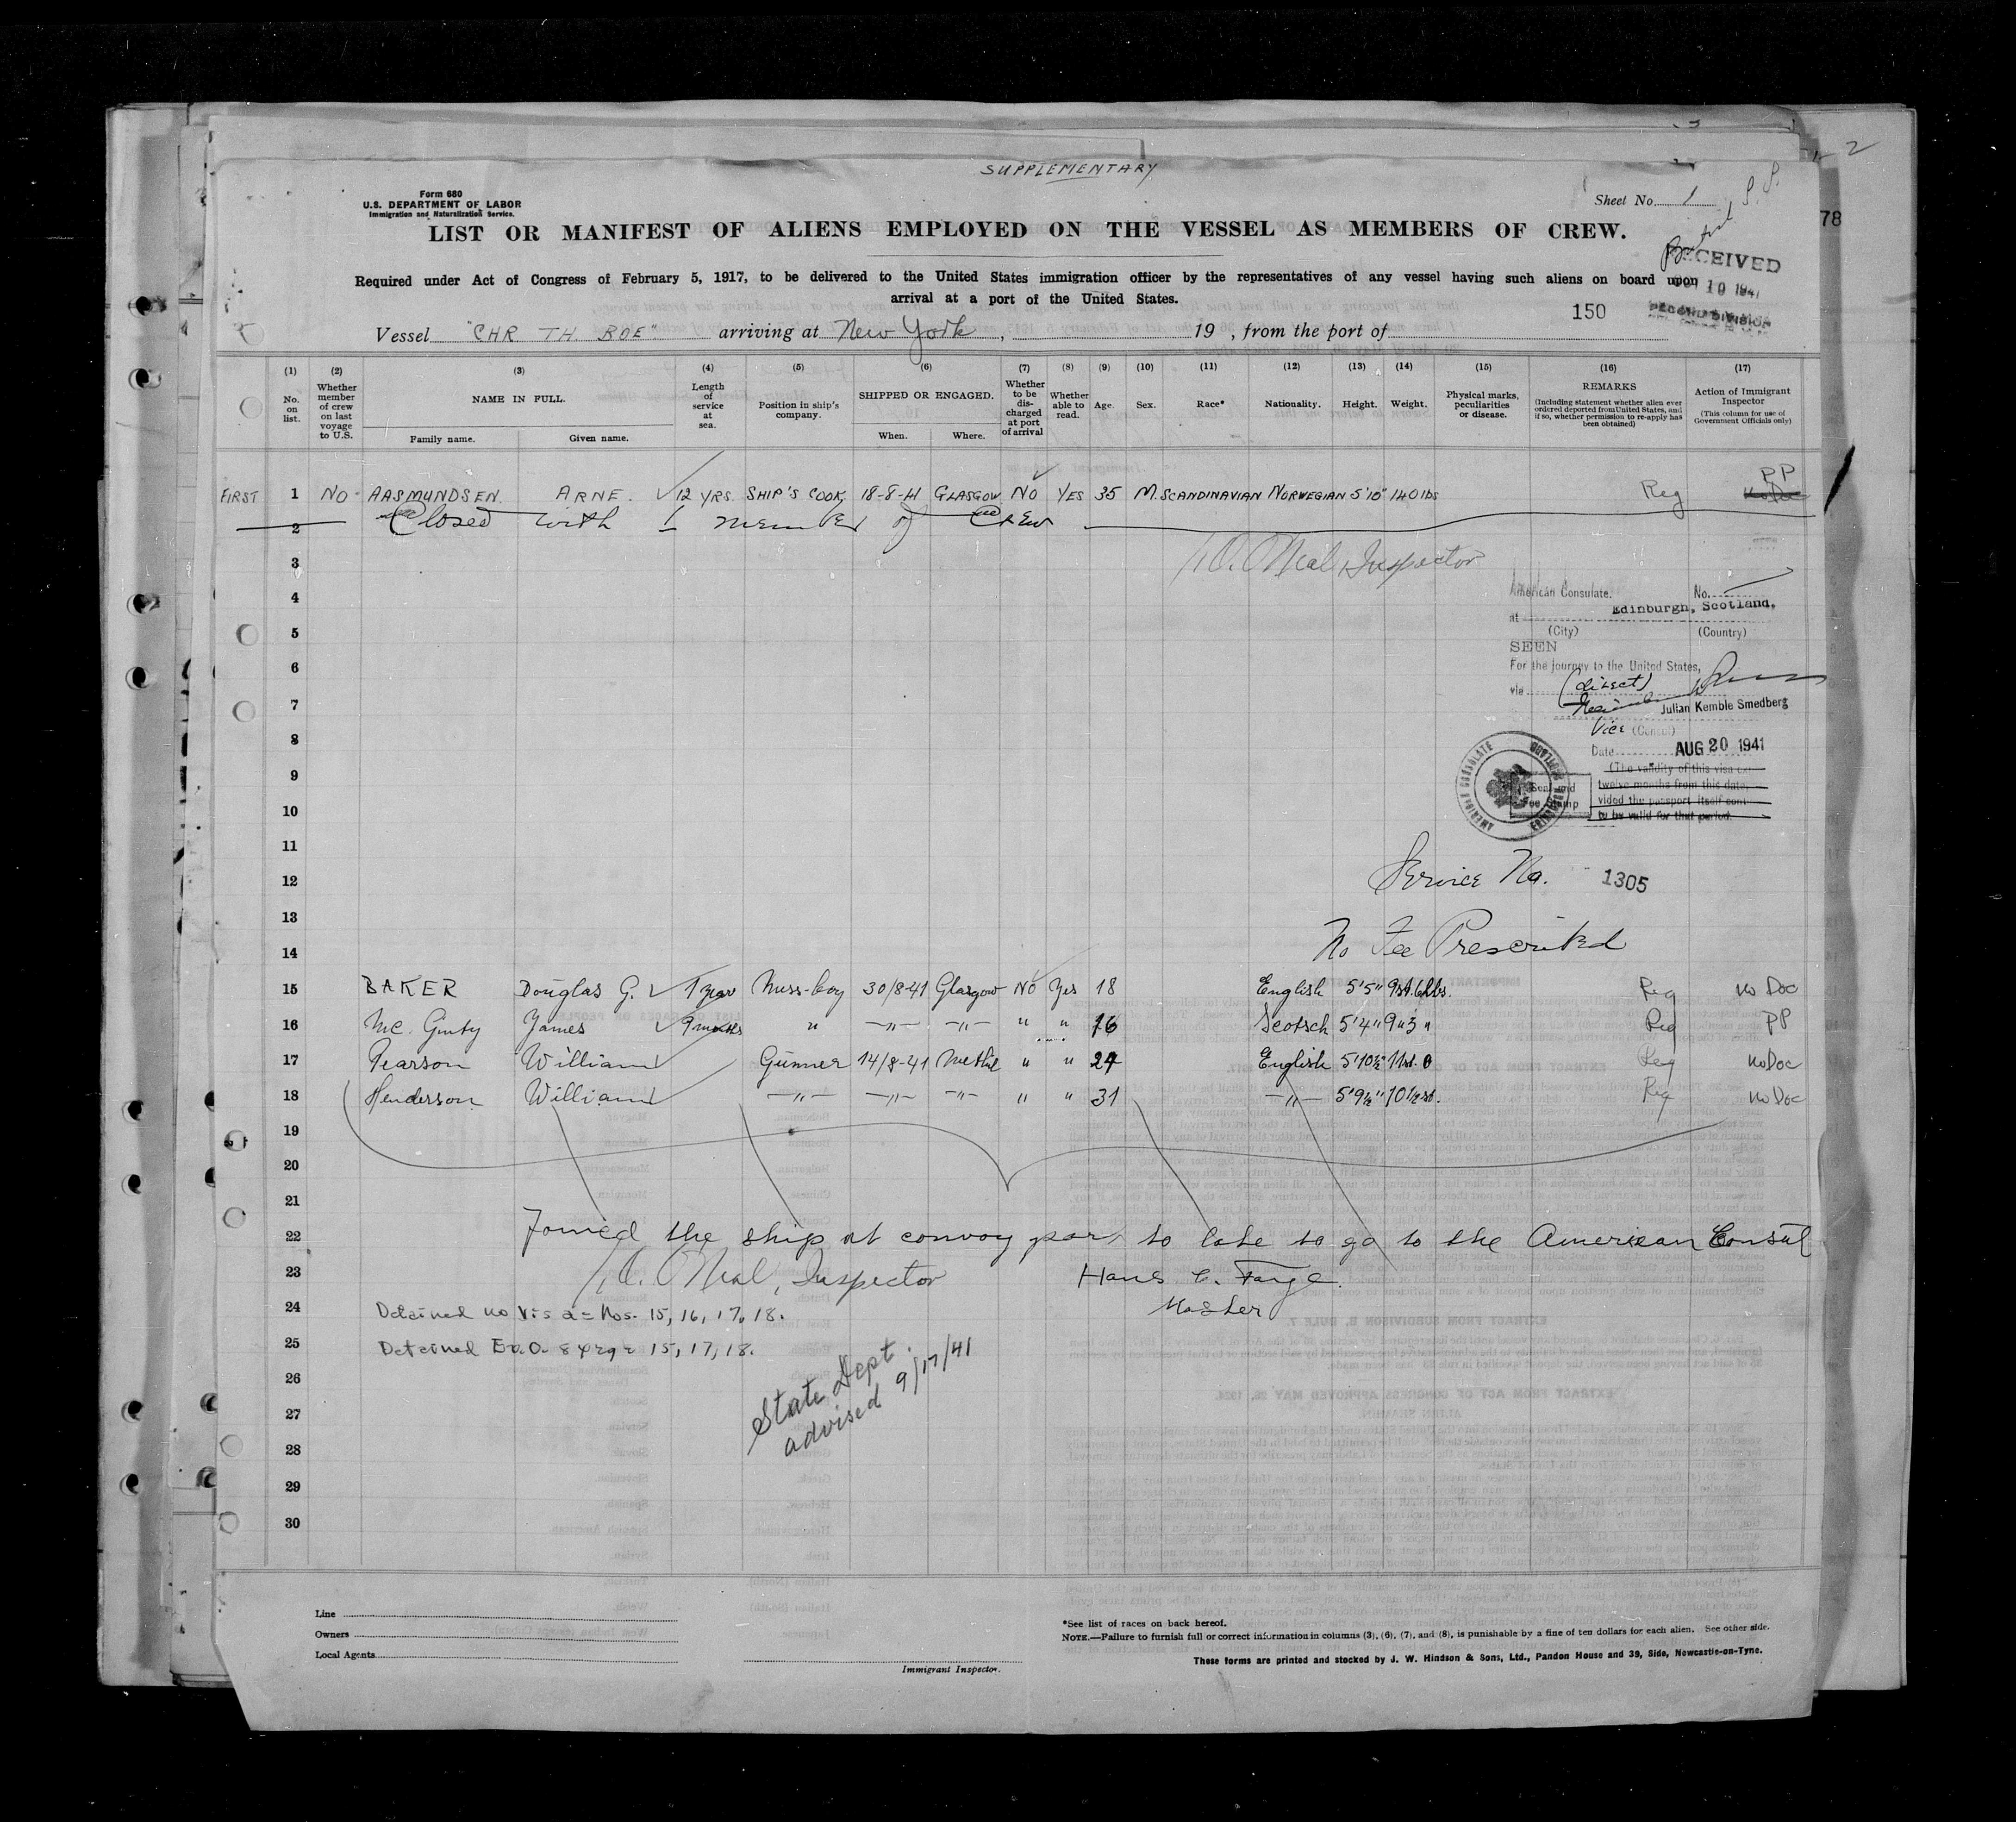 SUPPLEMENTARY
2
Form 680
U.S. DEPARTMENT OF LABOR
Immigration and Naturalization Service.
Sheet No. 1
78
LIST OR MANIFEST OF ALIENS EMPLOYED ON THE VESSEL AS MEMBERS OF CREW.
RECEIVED
Required under Act of Congress of February 5, 1917, to be delivered to the United States immigration officer by the representatives of any vessel having such aliens on board upon
10 1941
arrival at a port of the United States.
150
SECOND DIVISION
Vessel "CHR TH. BOE" arriving at New York, 19 , from the port of
(1) No. on list.
(2) Whether member of crew on last voyage to U.S.
(3) NAME IN FULL. Family name. Given name.
(4) Length of service at sea.
(5) Position in ship's company.
(6) SHIPPED OR ENGAGED. When. Where.
(7) Whether to be discharged at port of arrival
(8) Whether able to read.
(9) Age.
(10) Sex.
(11) Race*
(12) Nationality.
(13) Height.
(14) Weight.
(15) Physical marks, peculiarities or disease.
(16) REMARKS (Including statement whether alien ever ordered deported from United States, and if so, whether permission to re-apply has been obtained)
(17) Action of Immigrant Inspector (This column for use of Government Officials only)
PP
FIRST 1 NO AASMUNDSEN. ARNE. 12 YRS. SHIP'S COOK, 18-8-41 GLASGOW NO YES 35 M. SCANDINAVIAN NORWEGIAN 5'10" 140 lbs Reg
2 Closed with 1 member of Crew
3 O'Neal Inspector
4 American Consulate. No.
at Edinburgh, Scotland.
5 (City) (Country)
SEEN
6 For the journey to the United States,
via (direct)
7 Julian Kemble Smedberg
Vice (Consul)
8 Date AUG 20 1941
9 (The validity of this visa
10 twelve months from this date,
vided the passport itself
to be valid for that period.
AMERICAN CONSULATE EDINBURGH SCOTLAND
Seal and Fee Stamp
11
12 Service No. 1305
13
14 No Fee Prescribed
15 BAKER Douglas G. 1 year Mess-boy 30/8-41 Glasgow No Yes 18 English 5'5" 9st. 6lbs. Reg no Doc
16 Mc. Ginty James 9 months " -"- -"- " " 16 Scotsch 5'4" 9"3" Reg PP
17 Pearson William Gunner 14/8-41 Methil " " 24 English 5'10½" 11st. 0 Reg no Doc
18 Henderson William -"- -"- -"- " " 31 -"- 5'9½" 10½st. Reg no Doc
19
20
21
22 Joined the ship at convoy port to late to go to the American Consul
23 O'Neal, Inspector Hans C. Farge.
24 Detained no Visa = Nos. 15, 16, 17, 18. Master
25 Detained Ex. O. 8429 = 15, 17, 18.
26 State Dept. advised 9/17/41
27
28
29
30
Line
Owners
Local Agents
Immigrant Inspector.
*See list of races on back hereof.
NOTE.—Failure to furnish full or correct information in columns (3), (6), (7), and (8), is punishable by a fine of ten dollars for each alien. See other side.
These forms are printed and stocked by J. W. Hindson & Sons, Ltd., Pandon House and 39, Side, Newcastle-on-Tyne.